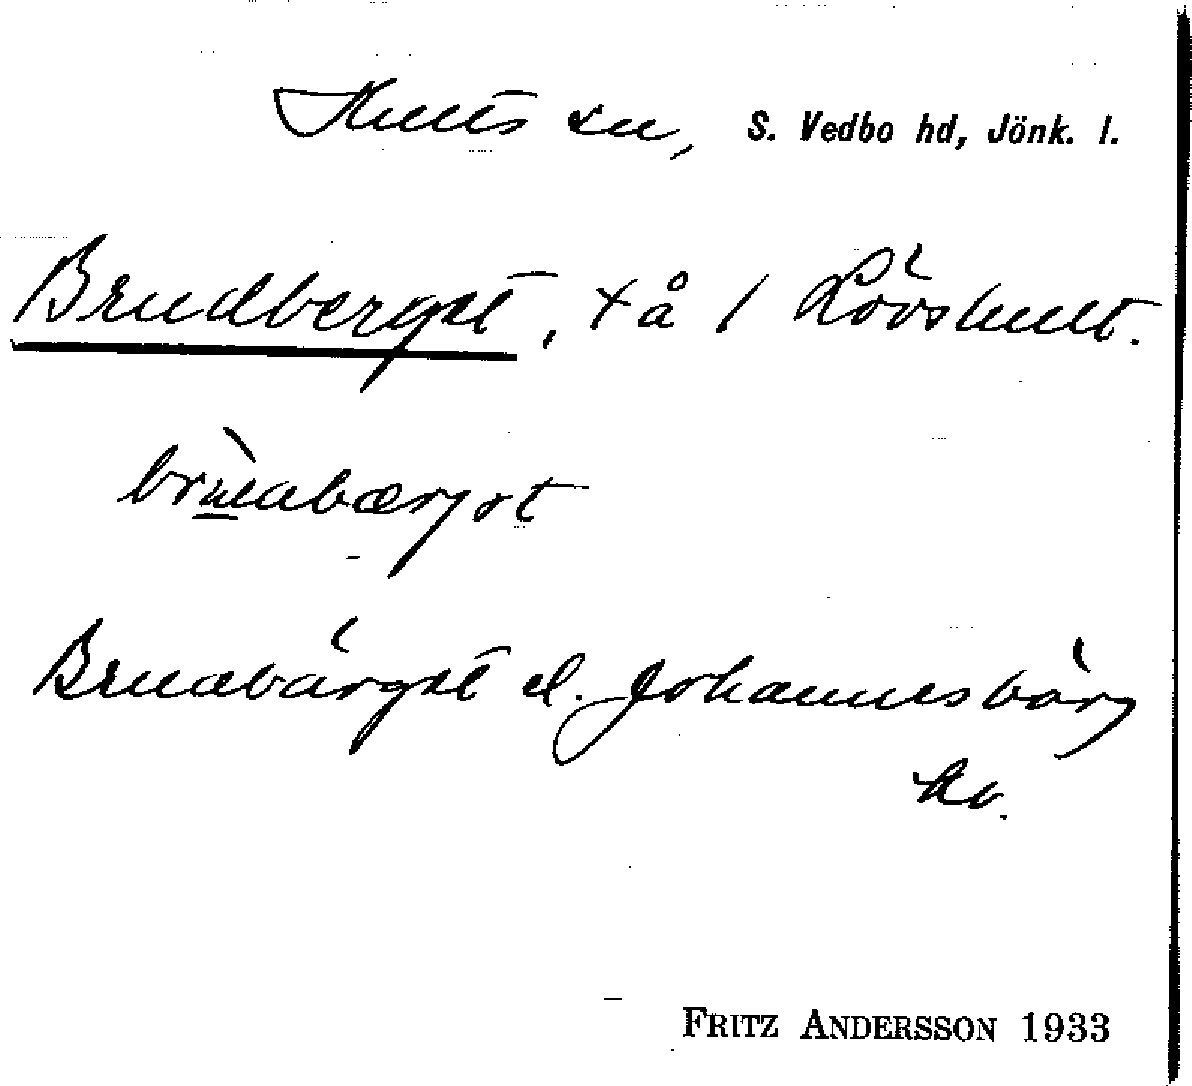 Hults sn, S. Vedbo hd, Jönk. l.
Brudberget, x å / Lövshult.
Brudbärget el. Johannesbärg
FRITZ ANDERSSON 1933